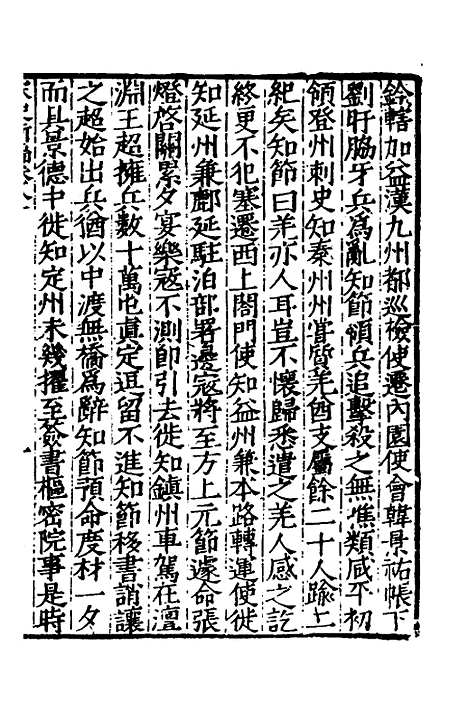 鈐轄加益漢九州都巡檢使遷內園使會韓景祐帳下
劉旰脇牙兵爲亂知節領兵追擊殺之無噍類咸平初
領登州刺史知秦州州嘗質羌酋支屬餘二十人踰二
紀矣知節曰羌亦人耳豈不懷歸悉遣之羌人感之訖
終更不犯塞遷西上閤門使知益州兼本路轉運使徙
知延州兼鄜延駐泊部署邊寇將至方上元節遽命張
燈啓關累夕宴樂寇不測卽引去徙知鎮州車駕在澶
淵王超擁兵數十萬屯眞定逗留不進知節移書誚讓
之超始出兵猶以中渡無橋爲辭知節預命度材一夕
而具景德中徙知定州未幾擢至簽書樞密院事是時